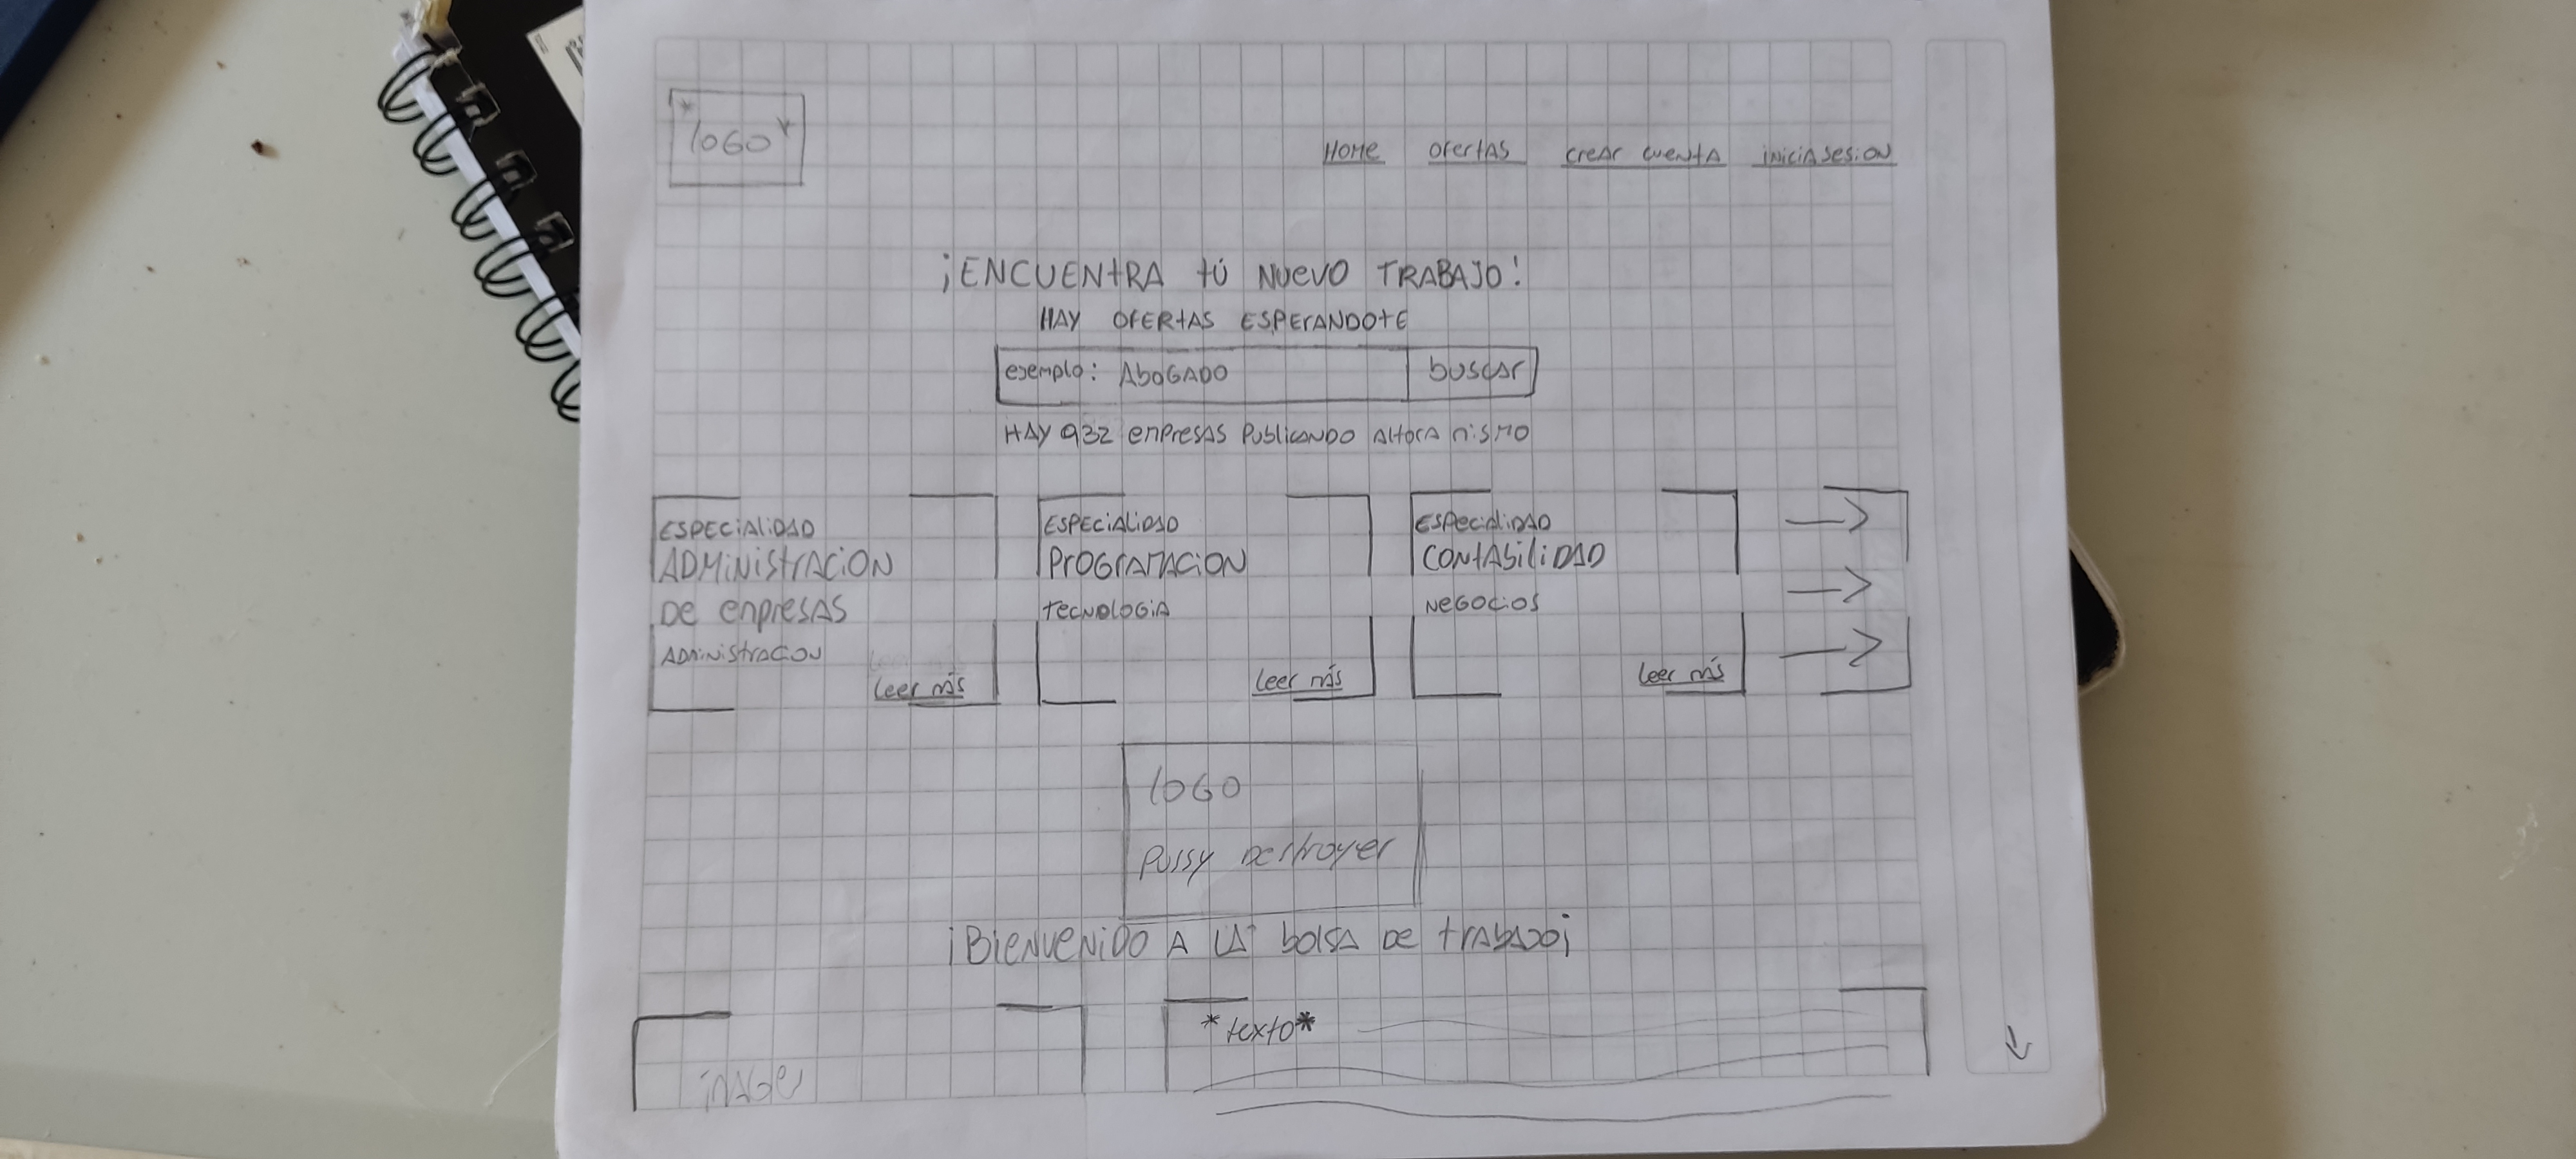 *logo*
Home ofertas crear cuenta iniciasesion
¡ENCUENTRA tú NUEVO TRABAJO!
HAY OFERTAS ESPERANDOTE
ejemplo: Abogado buscar
HAY 932 empresas publicando ahora mismo
ESPECIALIDAD
ADMINISTRACION
DE empresas
ADMINISTRACION
Leer más
ESPECIALIDAD
PROGRAMACION
TECNOLOGIA
Leer más
ESPECIALIDAD
CONTABILIDAD
NEGOCIOS
Leer más
logo
Pussy
¡Bienvenido A LA bolsa de trabajo¡
imagen
*texto*